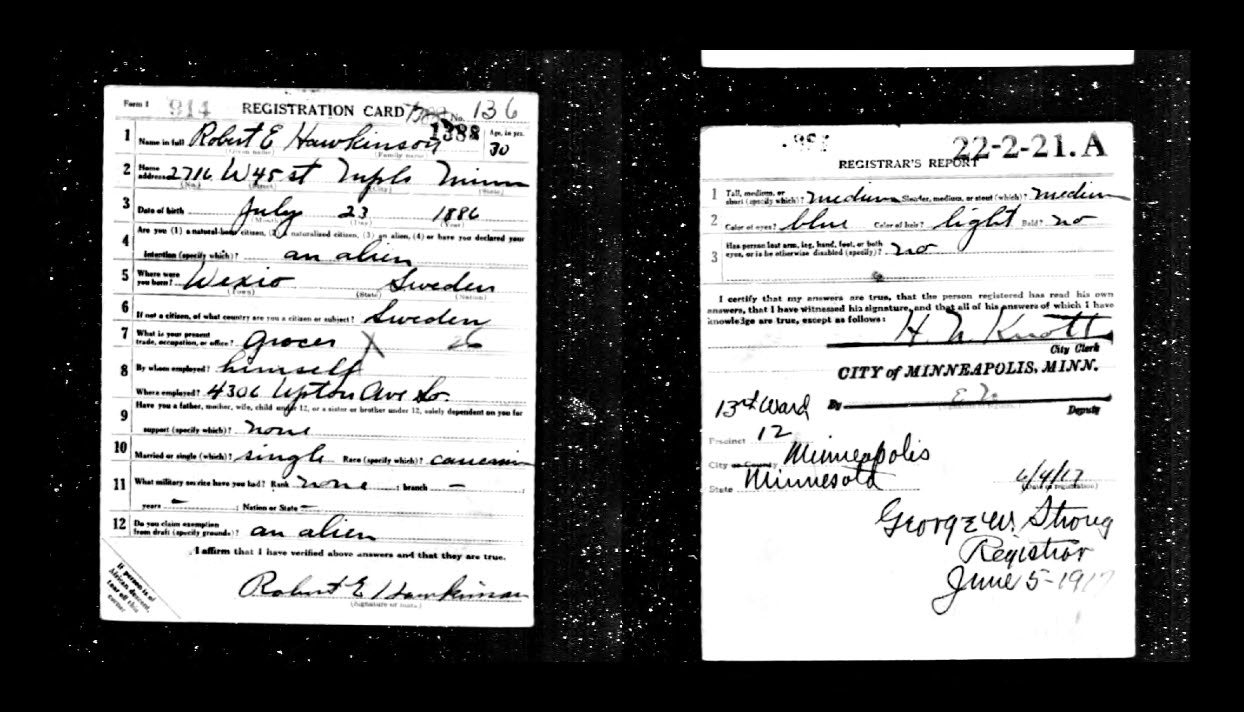 Form 1 914 REGISTRATION CARD No. 136
1 Name in full Robert E Hawkinson 1388 Age, in yrs. 30
(Given name) (Family name)
2 Home address 2716 W 45 st Mpls Minn
(No.) (Street) (City) (State)
3 Date of birth July 23 1886
(Month) (Day) (Year)
4 Are you (1) a natural-born citizen, (2) a naturalized citizen, (3) an alien, (4) or have you declared your
intention (specify which)? an alien
5 Where were you born? Wexio Sweden
(Town) (State) (Nation)
6 If not a citizen, of what country are you a citizen or subject? Sweden
7 What is your present trade, occupation, or office? Grocer X 26
8 By whom employed? himself
Where employed? 4306 Upton Ave So.
9 Have you a father, mother, wife, child under 12, or a sister or brother under 12, solely dependent on you for
support (specify which)? none
10 Married or single (which)? single Race (specify which)?
11 What military service have you had? Rank none ; branch — ;
years — ; Nation or State —
12 Do you claim exemption from draft (specify grounds)? an alien
I affirm that I have verified above answers and that they are true.
Robert E Hawkinson
(Signature or mark)
If person is of
African descent,
tear off this
corner
22-2-21. A
REGISTRAR'S REPORT
1 Tall, medium, or short (specify which)? medium Slender, medium, or stout (which)? medium
2 Color of eyes? blue Color of hair? light Bald? no
3 Has person lost arm, leg, hand, foot, or both eyes, or is he otherwise disabled (specify)? no
I certify that my answers are true, that the person registered has read his own
answers, that I have witnessed his signature, and that all of his answers of which I have
knowledge are true, except as follows:
H. N. Knott
City Clerk
CITY of MINNEAPOLIS, MINN.
13rd Ward By Deputy
Precinct 12
City or County Minneapolis
State Minnesota 6/4/17
(Date of registration)
George W. Strong
Registror
June 5-1917